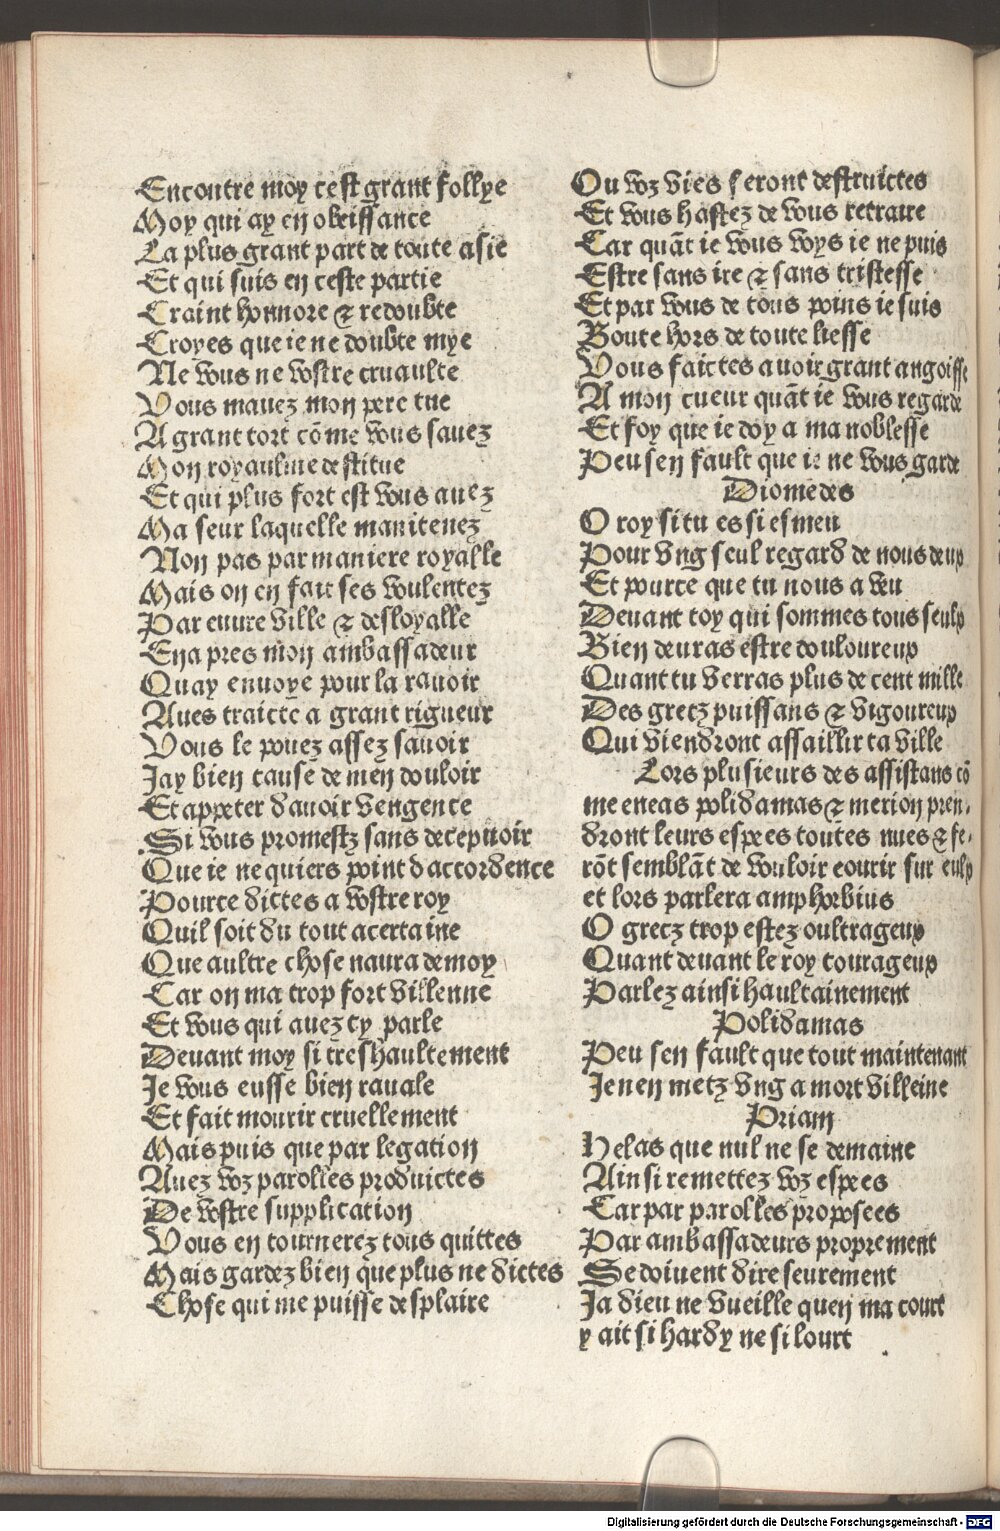 Encontre moy cest grant follye
Moy qui ay en obeissance
La plus grant part de toute asie
Et qui suis en ceste partie
Craint honnore & redoubte
Croyes que ie ne doubte mye
Ne vous ne vostre cruaulte
Vous mauez mon pere tue
A grant tort cõme vous sauez
Mon royaulme destitue
Et qui plus fort est vous auez
Ma seur laquelle manitenez
Non pas par maniere royalle
Mais on en fait ses voulentez
Par euure ville & desloyalle
En apres mon ambassadeur
Quay enuoye pour la rauoir
Aues traicte a grant rigueur
Vous le pouez assez sauoir
Jay bien cause de men douloir
Et appeter dauoir vengence
Si vous promestz sans decepuoir
Que ie ne quiers point daccordence
Pource dictes a vostre roy
Quil soit du tout acertaine
Que aultre chose naura de moy
Car on ma trop fort villenne
Et vous qui auez cy parle
Deuant moy si treshaultement
Je vous eusse bien rauale
Et fait mourir cruellement
Mais puis que par legation
Auez voz parolles produictes
De vostre supplication
Vous en tournerez tous quittes
Mais gardez bien que plus ne dictes
Chose qui me puisse desplaire
Ou voz vies seront destruictes
Et vous hastez de vous retraire
Car quãt ie vous voys ie ne puis
Estre sans ire & sans tristesse
Et par vous de tous poins ie suis
Boute hors de toute liesse
Vous faictes auoir grant angoisse
A mon cueur quãt ie vous regarde
Et foy que ie doy a ma noblesse
Peu sen fault que ie ne vous garde
Diomedes
O roy si tu es si esmeu
Pour vng seul regard de nous deux
Et pource que tu nous a veu
Deuant toy qui sommes tous seulx
Bien deuras estre douloureux
Quant tu verras plus de cent mille
Des gretz puissans & vigoureux
Qui viendront assaillir ta ville
Lors plusieurs des assistans cõ
me eneas polidamas & merion pren-
dront leurs espees toutes nues & fe-
rõt semblãt de vouloir courir sur eulx
et lors parlera amphorbius
O grecz trop estez oultrageux
Quant deuant le roy courageux
Parlez ainsi haultainement
Polidamas
Peu sen fault que tout maintenant
Je nen metz vng a mort villeine
Priam
Helas que nul ne se demaine
Ainsi remettez voz espees
Car par parolles proposees
Par ambassadeurs proprement
Se doiuent dire seurement
Ja dieu ne vueille quen ma court
y ait si hardy ne si lourt
Digitalisierung gefördert durch die Deutsche Forschungsgemeinschaft - DFG